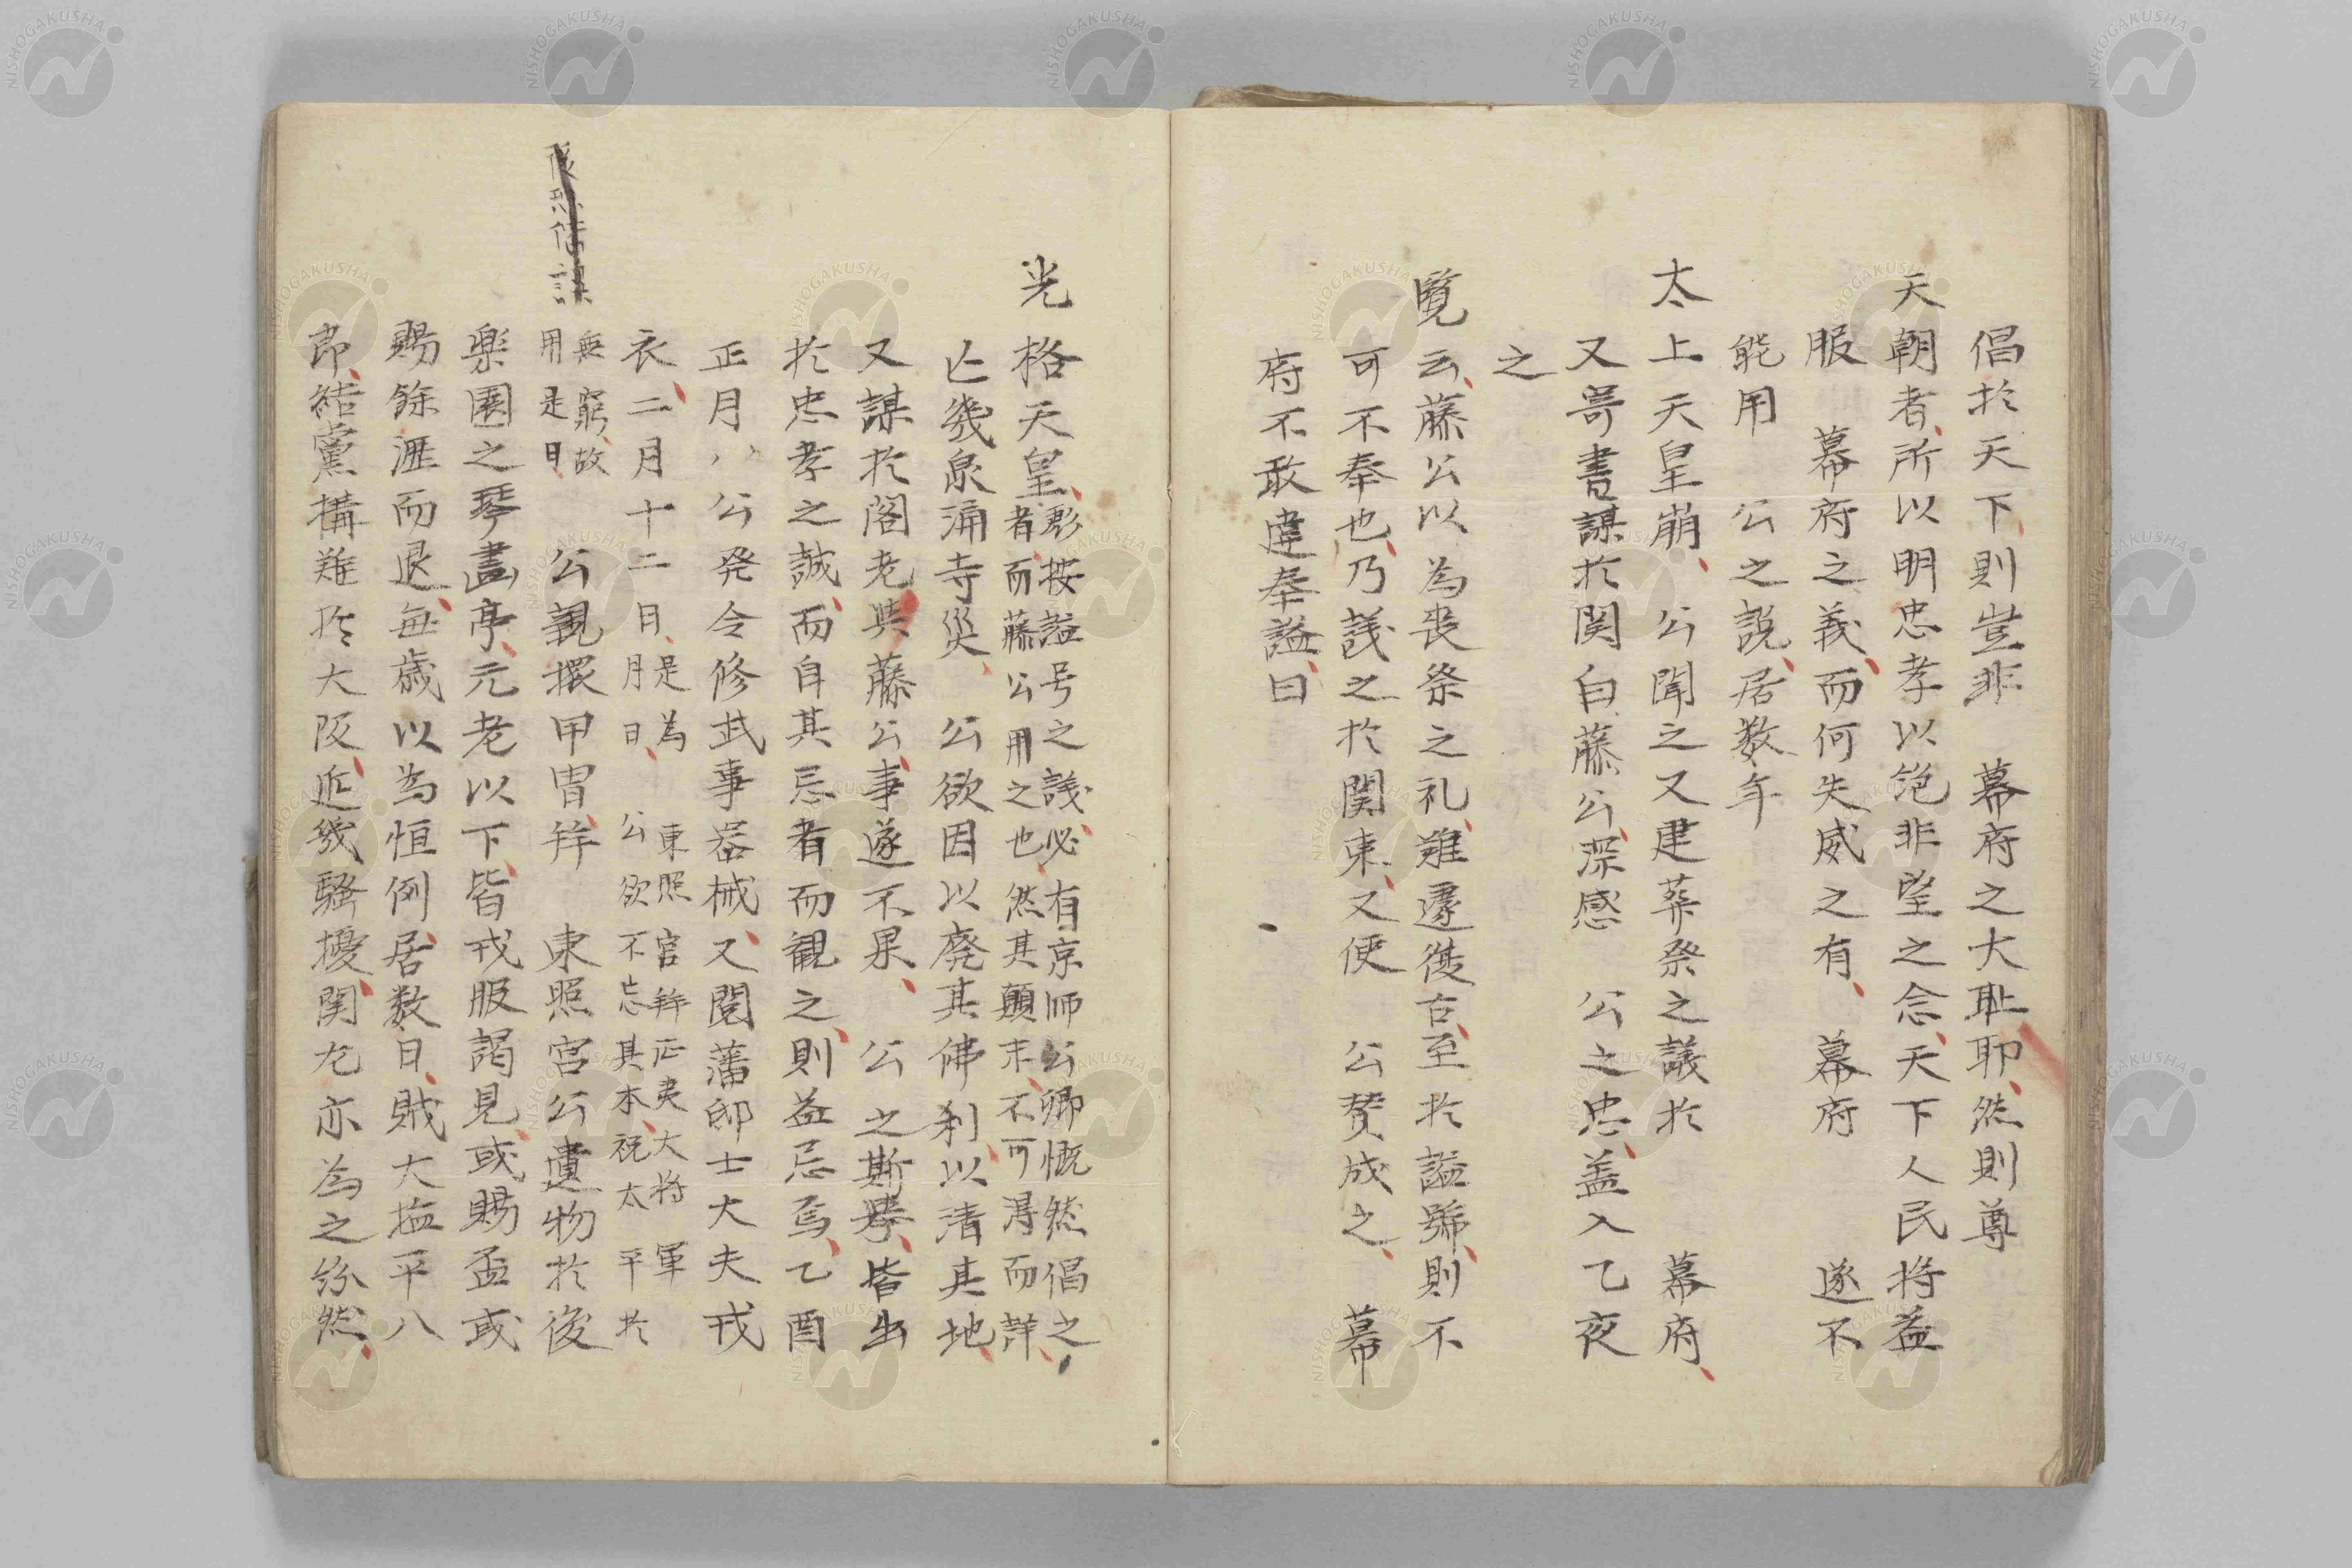 倡於天下則豈非 幕府之大耻耶然則尊
天朝者所以明忠孝以絶非望之念天下人民将益
服 幕府之義而何失威之有 幕府 遂不
能用 公之説居数年
太上天皇崩 公聞之又建葬祭之議於 幕府
又寄書謀於関白藤公深感 公之忠盖入乙夜
之
覧云藤公以為喪祭之礼難遽復古至於諡号則不
可不奉也乃議之於関東又使 公賛成之 幕
府不敢違奉諡曰
光格天皇
彪按諡号之議必有京师公卿慨然倡之
者而藤公用之也然其顛末不可得而詳
亡幾泉涌寺災 公欲因以廃其佛刹以清其地
又謀於閣老與藤公事遂不果 公之斯挙皆出
於忠孝之誠而自其忌者而観之則益忌焉乙酉
正月 公発令修武事器械又閲藩邸士大夫戎
衣二月十二日
是為 東照宮拜正夷大将軍
月日 公欲不忘其本祝太平於
無窮故
用是日
公親擐甲冑拜 東照宮公遺物於後
楽園之琴畵亭元老以下皆戎服謁見或賜盃或
賜餘瀝而退毎歳以為恒例居数日賊大塩平八
即結黨構難於大阪近畿騒擾関左亦為之紛然